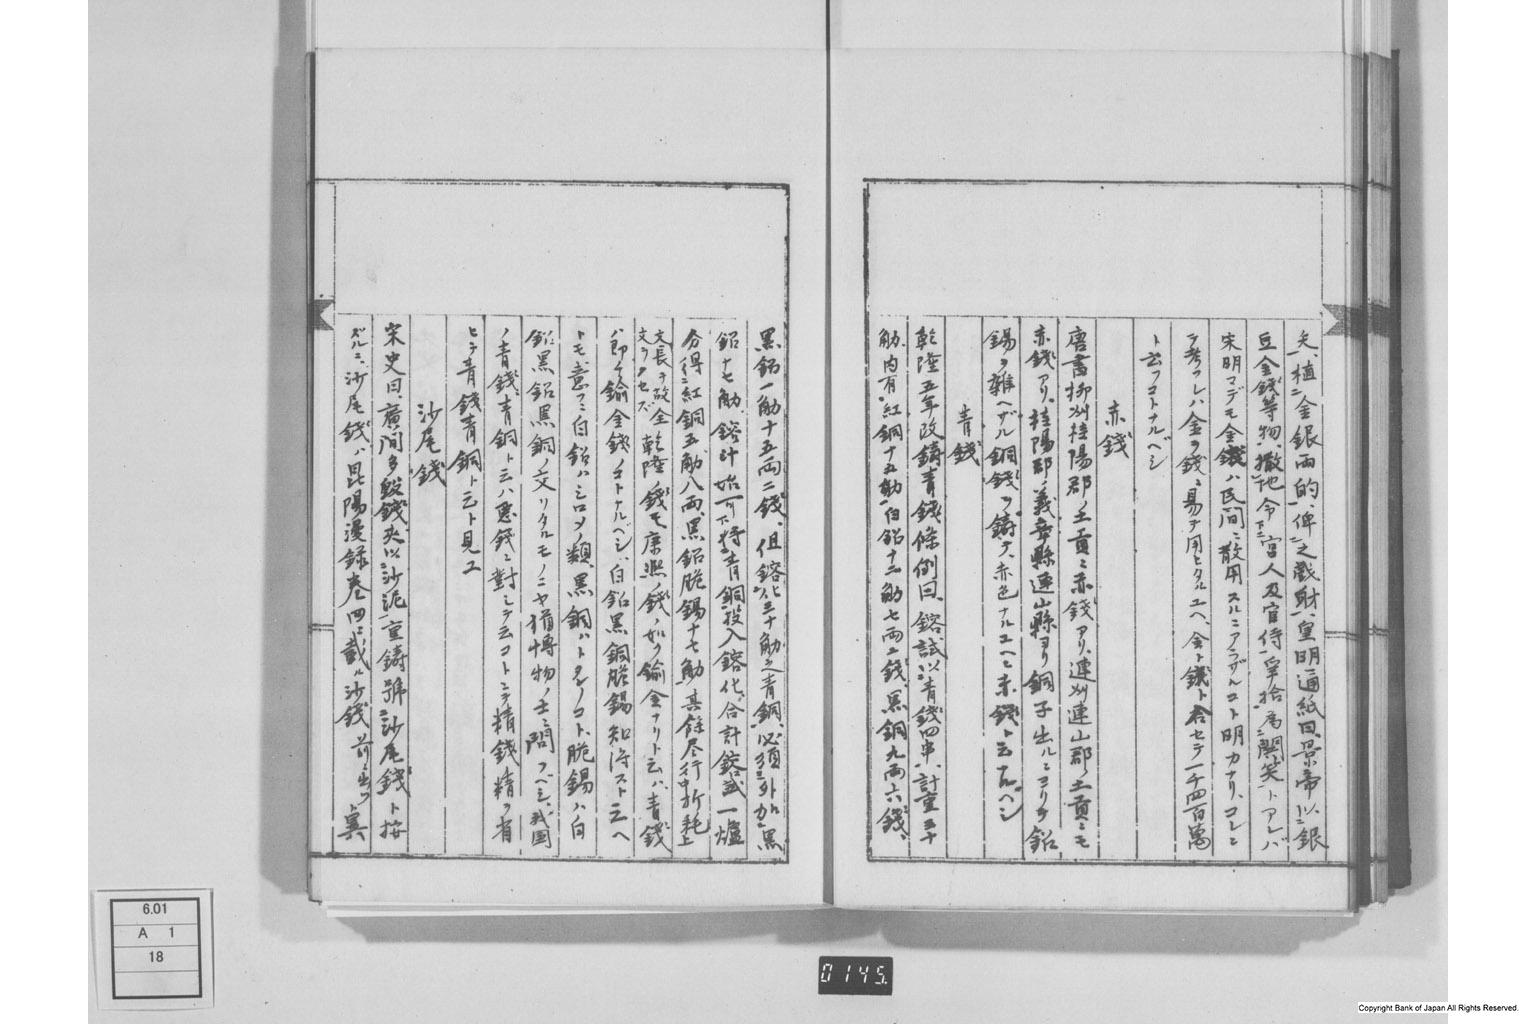 矣、植ニ金銀両的、俾之戯財、皇明通紙曰、景帝以ニ銀
豆金錢等物、撒地令下宮人及宦侍一爭拾上為ニ閧笑トアレバ
宋明マデモ金錢ハ民間ニ散用スルニアラザルコト明カナリ、コレニ
テ考フレハ金ヲ錢ニ易テ用ヒタルユヘ、金ト錢ト合セテ一千四百萬
ト云フコトナルベシ
赤錢
唐書郴州桂陽郡ノ土貢ニ赤錢アリ、連州連山郡ノ土貢ニモ
赤錢アリ、桂陽郡ノ義章縣連山縣ヨリ銅子出ルニヨリテ鉛
錫ヲ雜ヘザル銅錢ヲ鑄テ、赤色ナルユヘニ赤錢ト云ナルベシ
青錢
乾隆五年改鑄青錢條例曰、鎔試以青錢四串、計重三十
觔、内有紅銅十五觔、白鉛十二觔七両二錢、黒銅九両六錢、
黒鉛一觔十五両二錢、但鎔化三十觔之青銅、必須外加黒
鉛十七觔、鎔汁始可下将青銅投入鎔化、合計鎔試一爐
分得ニ紅銅五觔八両、黒鉛脆錫十七觔其餘尽行折耗上
文長キ故全文ヲノセズ 乾隆錢モ康熙ノ錢ノ如ク鍮金ナリト云ハ、青錢
ハ即チ鍮金錢ノコトナルベシ、白鉛黒銅脆錫知得ストニ云ヘ
トモ、意フニ白鉛ハシロメノ類、黒銅ハトタンノコト、脆錫ハ白
鉛黒鉛黒銅ノ交リタルモノニヤ猶博物ノ士ニ問フベシ、我國
ノ青錢、青銅ト云ハ悪錢ニ對シテ云コトニテ精錢精ヲ省
ヒテ青錢青銅ト云ト見ユ
沙尾錢
宋史曰、廣間多毀錢、夾以沙泥重鑄號沙尾錢ト按
ズルニ、沙尾錢ハ昆陽漫録巻四ニ載ル沙錢前ニ出ツト異
6.01
A 1
18
0145
Copyright Bank of Japan All Rights Reserved.